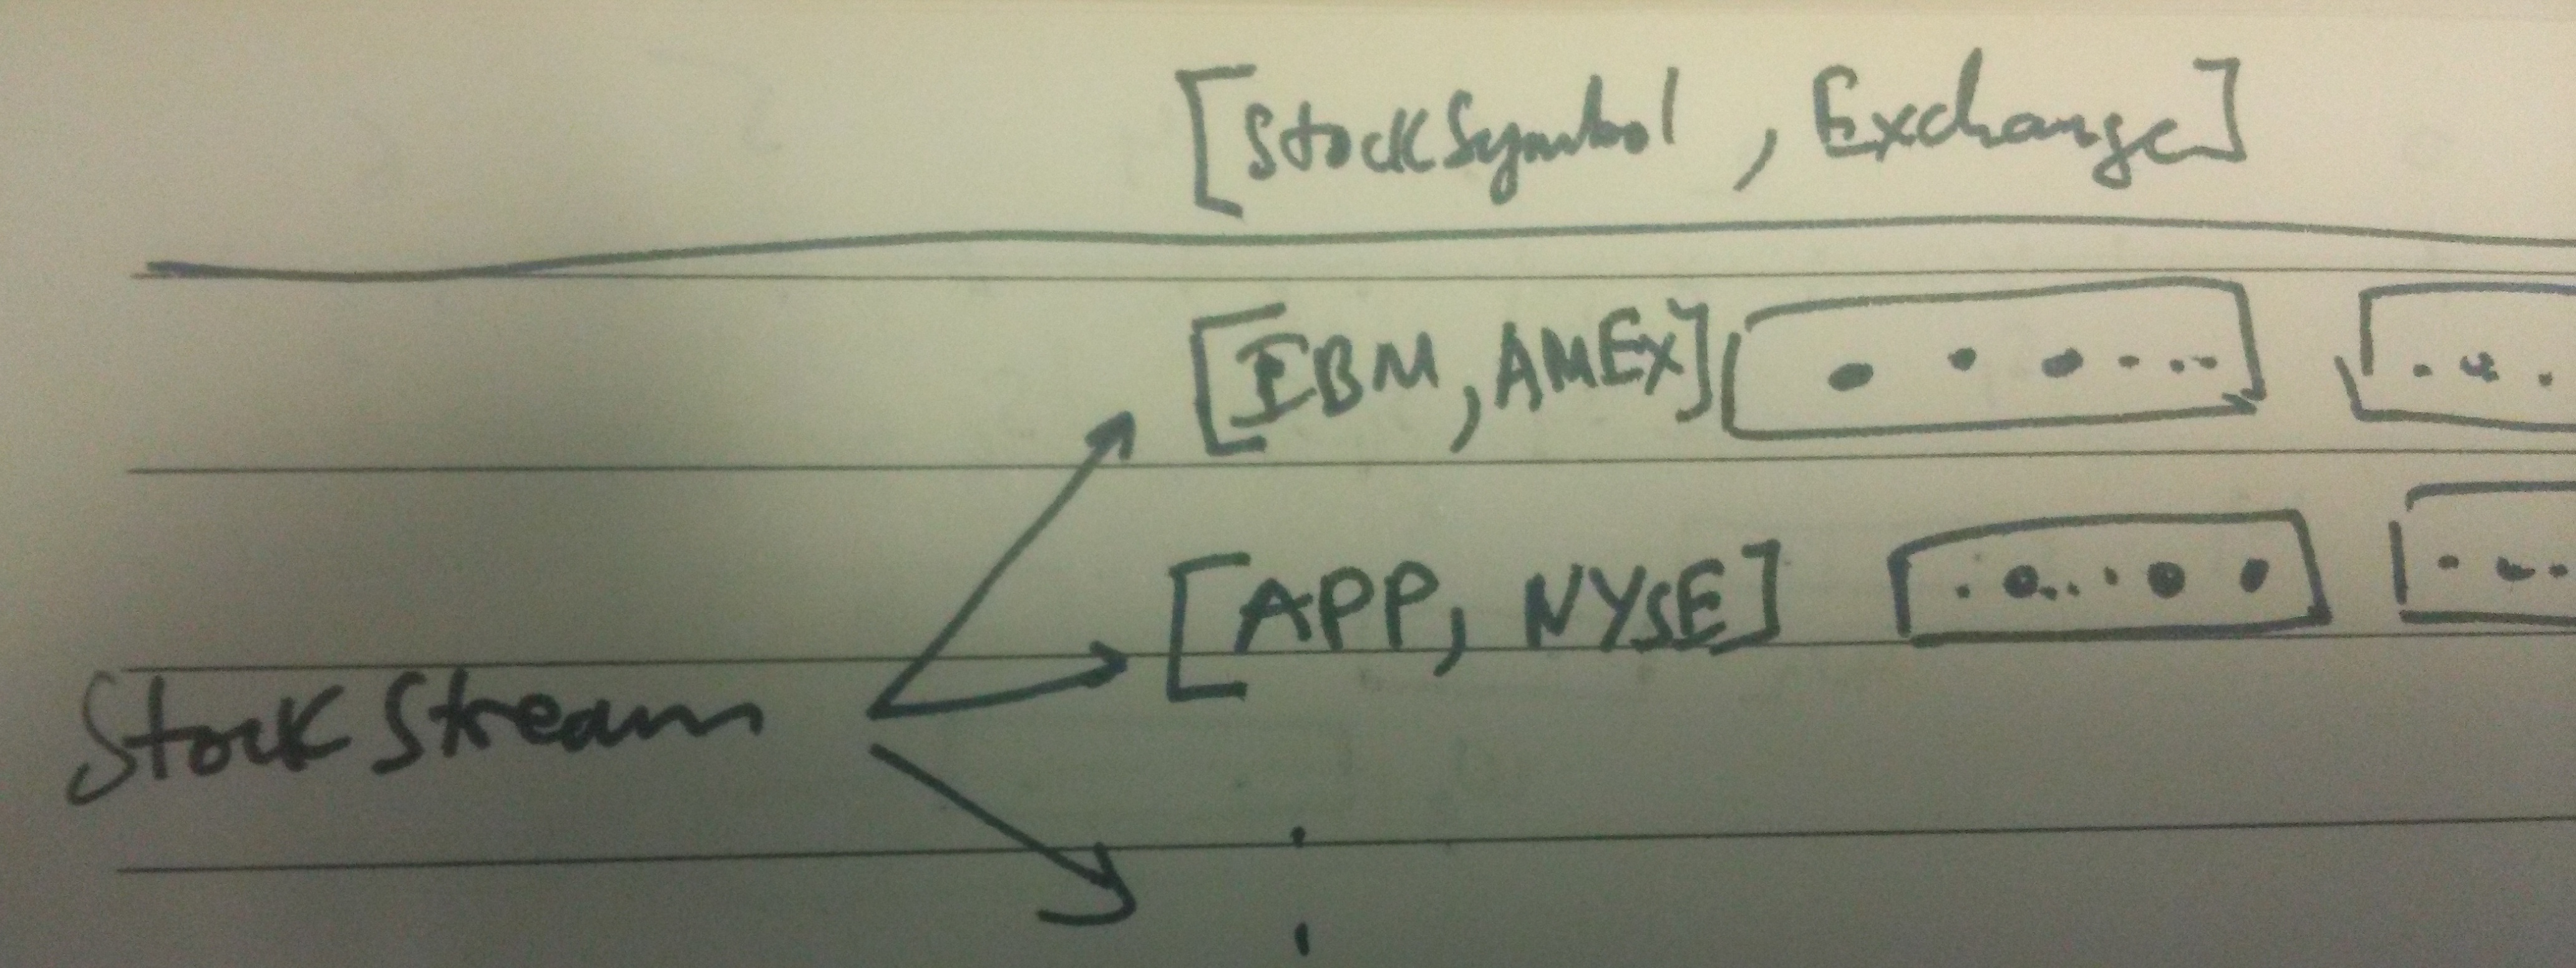 [StockSymbol, Exchange]
[IBM, AMEX]
[APP, NYSE]
Stock Stream